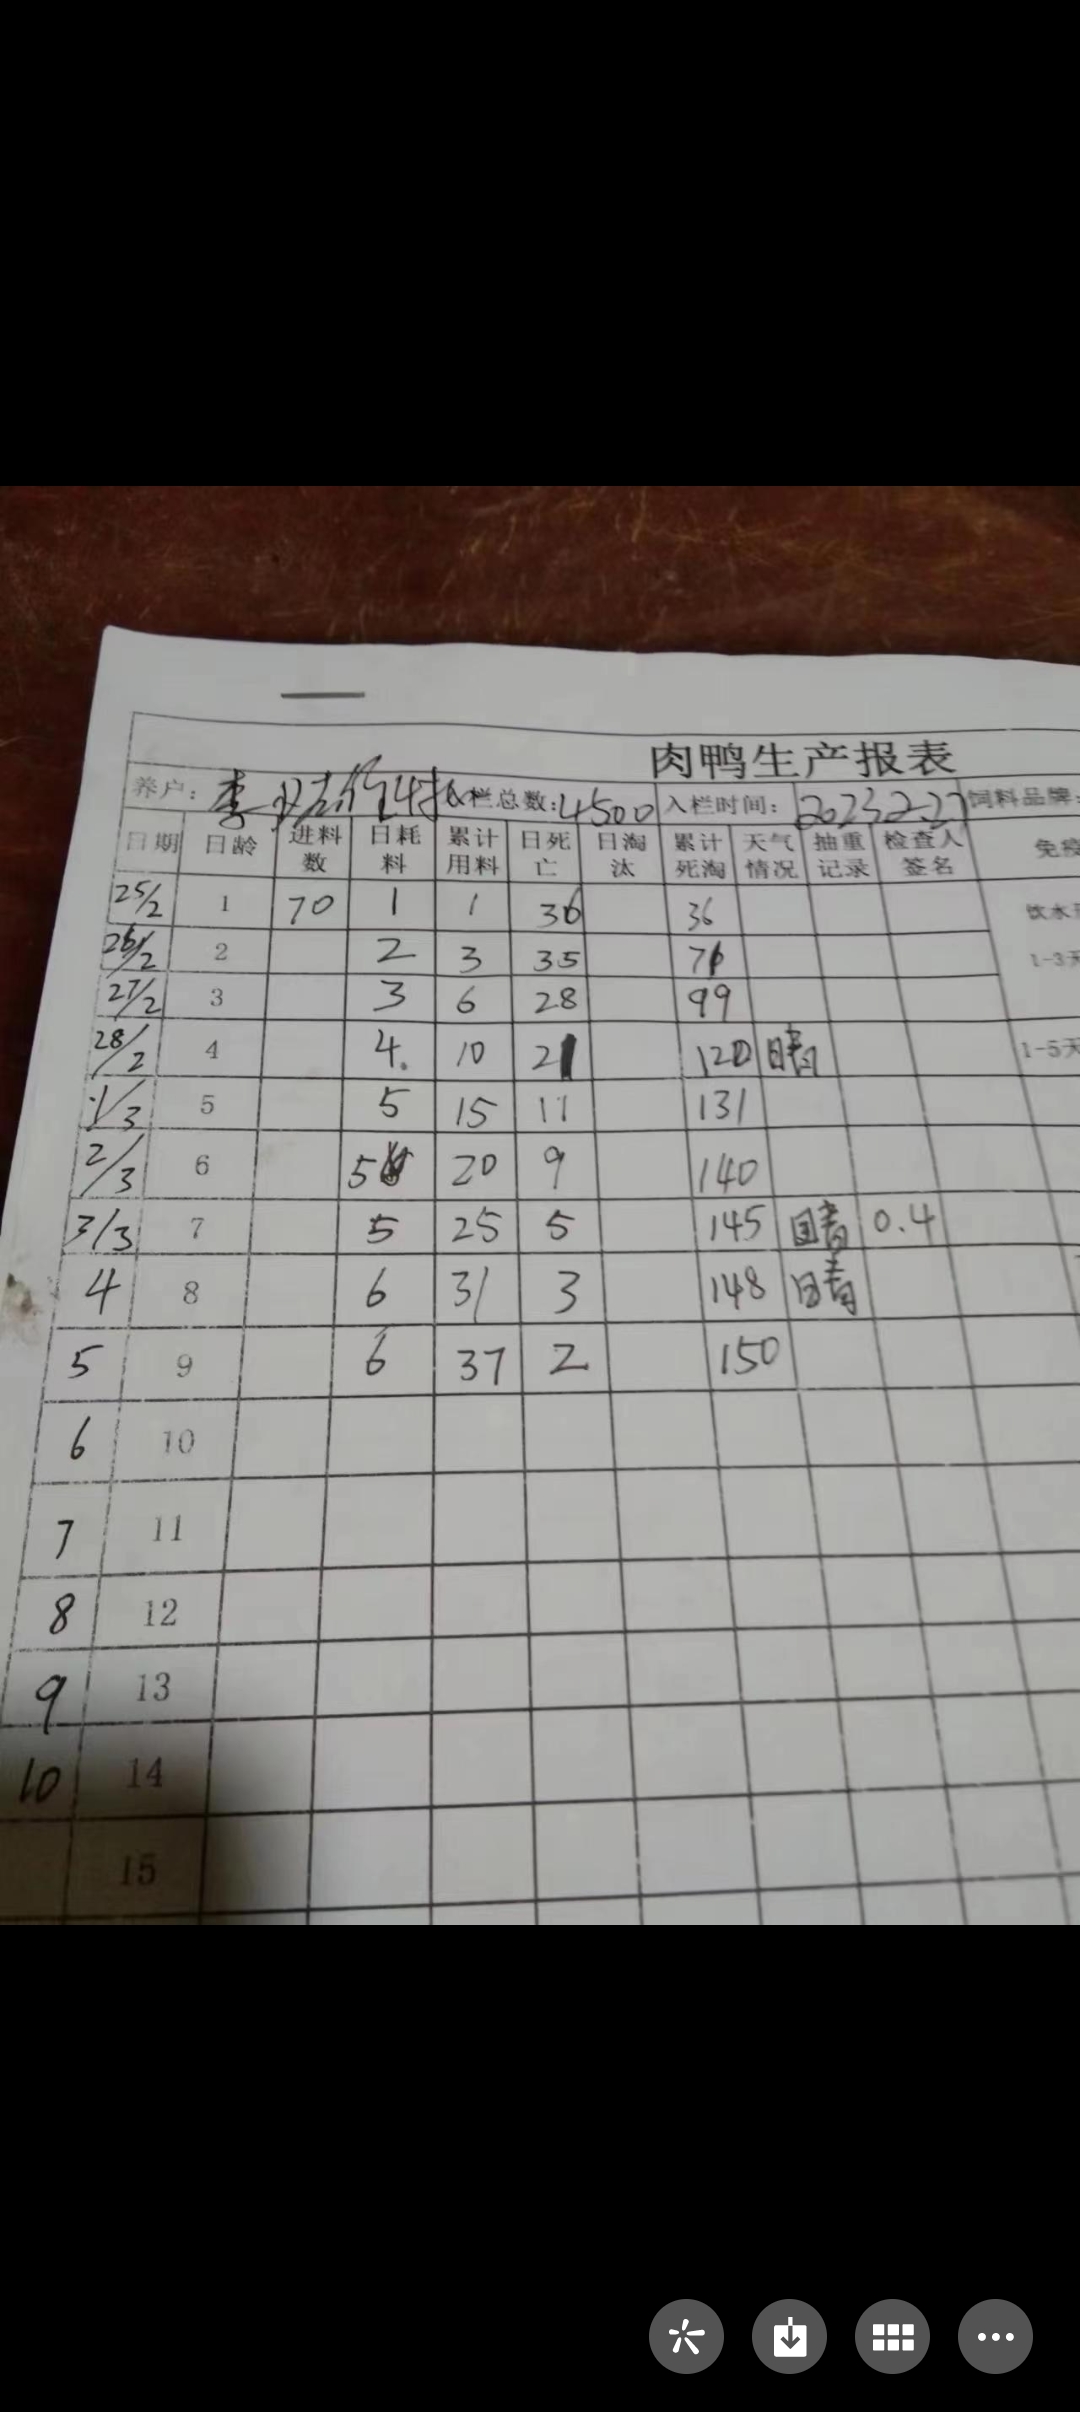 肉鸭生产报表
养户: 李 栏总数: 4500 入栏时间: 2023.2.27 饲料品牌:
日期 日龄 进料数 日耗料 累计用料 日死亡 日淘汰 累计死淘 天气情况 抽重记录 检查人签名 免疫
25/2 1 70 1 1 36 36 饮水
26/2 2 2 3 35 71 1-3天
27/2 3 3 6 28 99
28/2 4 4. 10 21 120 晴 1-5天
1/3 5 5 15 11 131
2/3 6 5 20 9 140
3/3 7 5 25 5 145 晴 0.4
4 8 6 31 3 148 晴
5 9 6 37 2 150
6 10
7 11
8 12
9 13
10 14
15